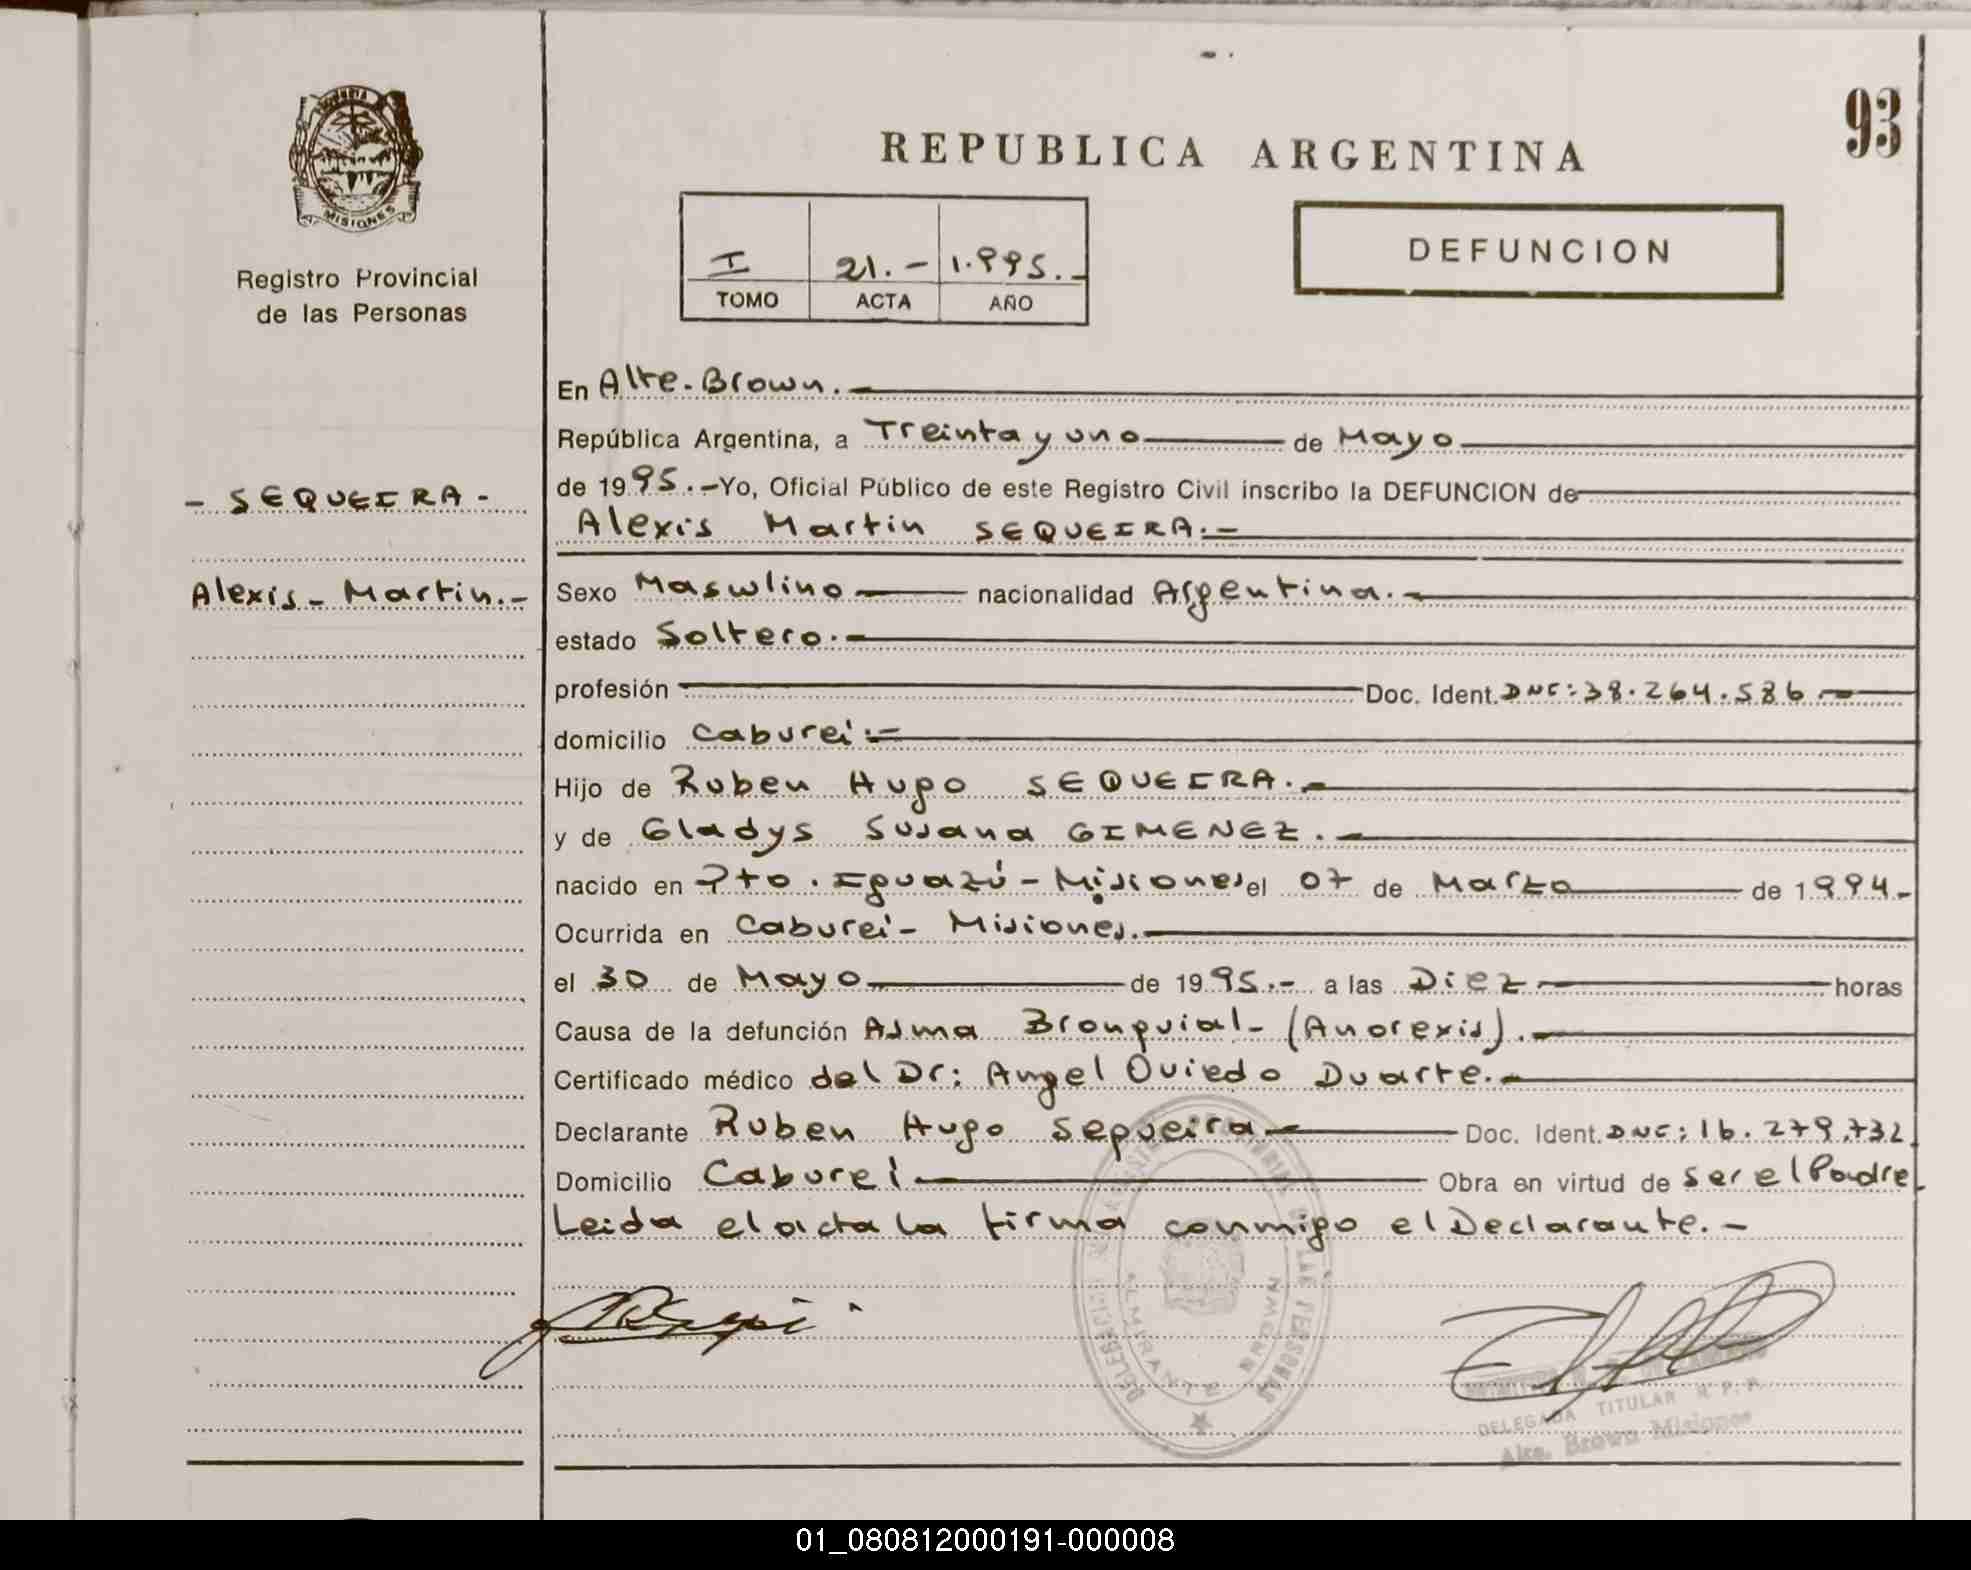 93
REPUBLICA ARGENTINA
PROVINCIA
MISIONES
Registro Provincial
de las Personas
DEFUNCION
I 21.- 1.995.-
TOMO ACTA AÑO
En Alte. Brown.-
República Argentina, a Treinta y uno de Mayo
de 1995.- Yo, Oficial Público de este Registro Civil inscribo la DEFUNCION de
- SEQUEIRA -
Alexis Martin SEQUEIRA.-
Alexis - Martin.-
Sexo Masculino nacionalidad Argentina.-
estado Soltero.-
profesión Doc. Ident. DNI: 38.264.586.-
domicilio Caburei.-
Hijo de Ruben Hugo SEQUEIRA.-
y de Gladys Susana GIMENEZ.-
nacido en Pto. Iguazú - Misiones el 07 de Marzo de 1994.-
Ocurrida en Caburei - Misiones.-
el 30 de Mayo de 1995.- a las Diez horas
Causa de la defunción Asma Bronquial - (Anorexis).-
Certificado médico del Dr: Angel Oviedo Duarte.-
Declarante Ruben Hugo Sequeira Doc. Ident. DNI: 16.279.732
Domicilio Caburei Obra en virtud de ser el Padre
Leida el acta la firma conmigo el Declarante.-
ALMIRANTE BROWN
DELEGADA TITULAR R. P. P.
Alte. Brown Misiones
01_080812000191-000008